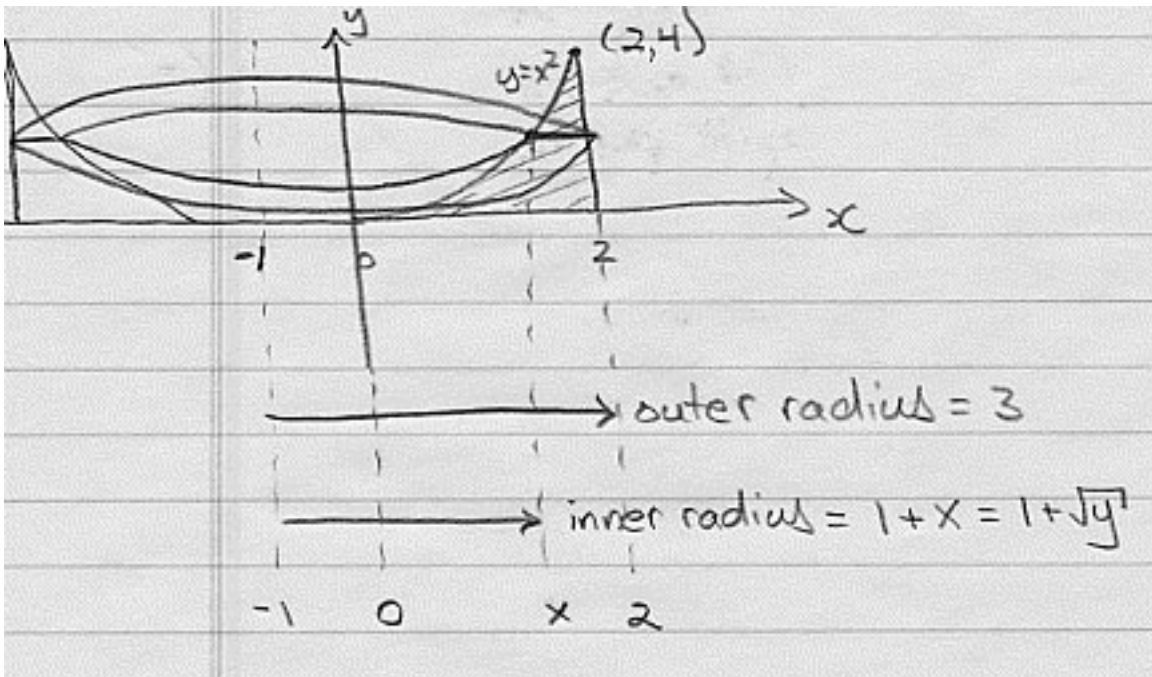 y
(2,4)
y=x²
x
-1 0 2
outer radius = 3
inner radius = 1 + x = 1 + √y
-1 0 x 2